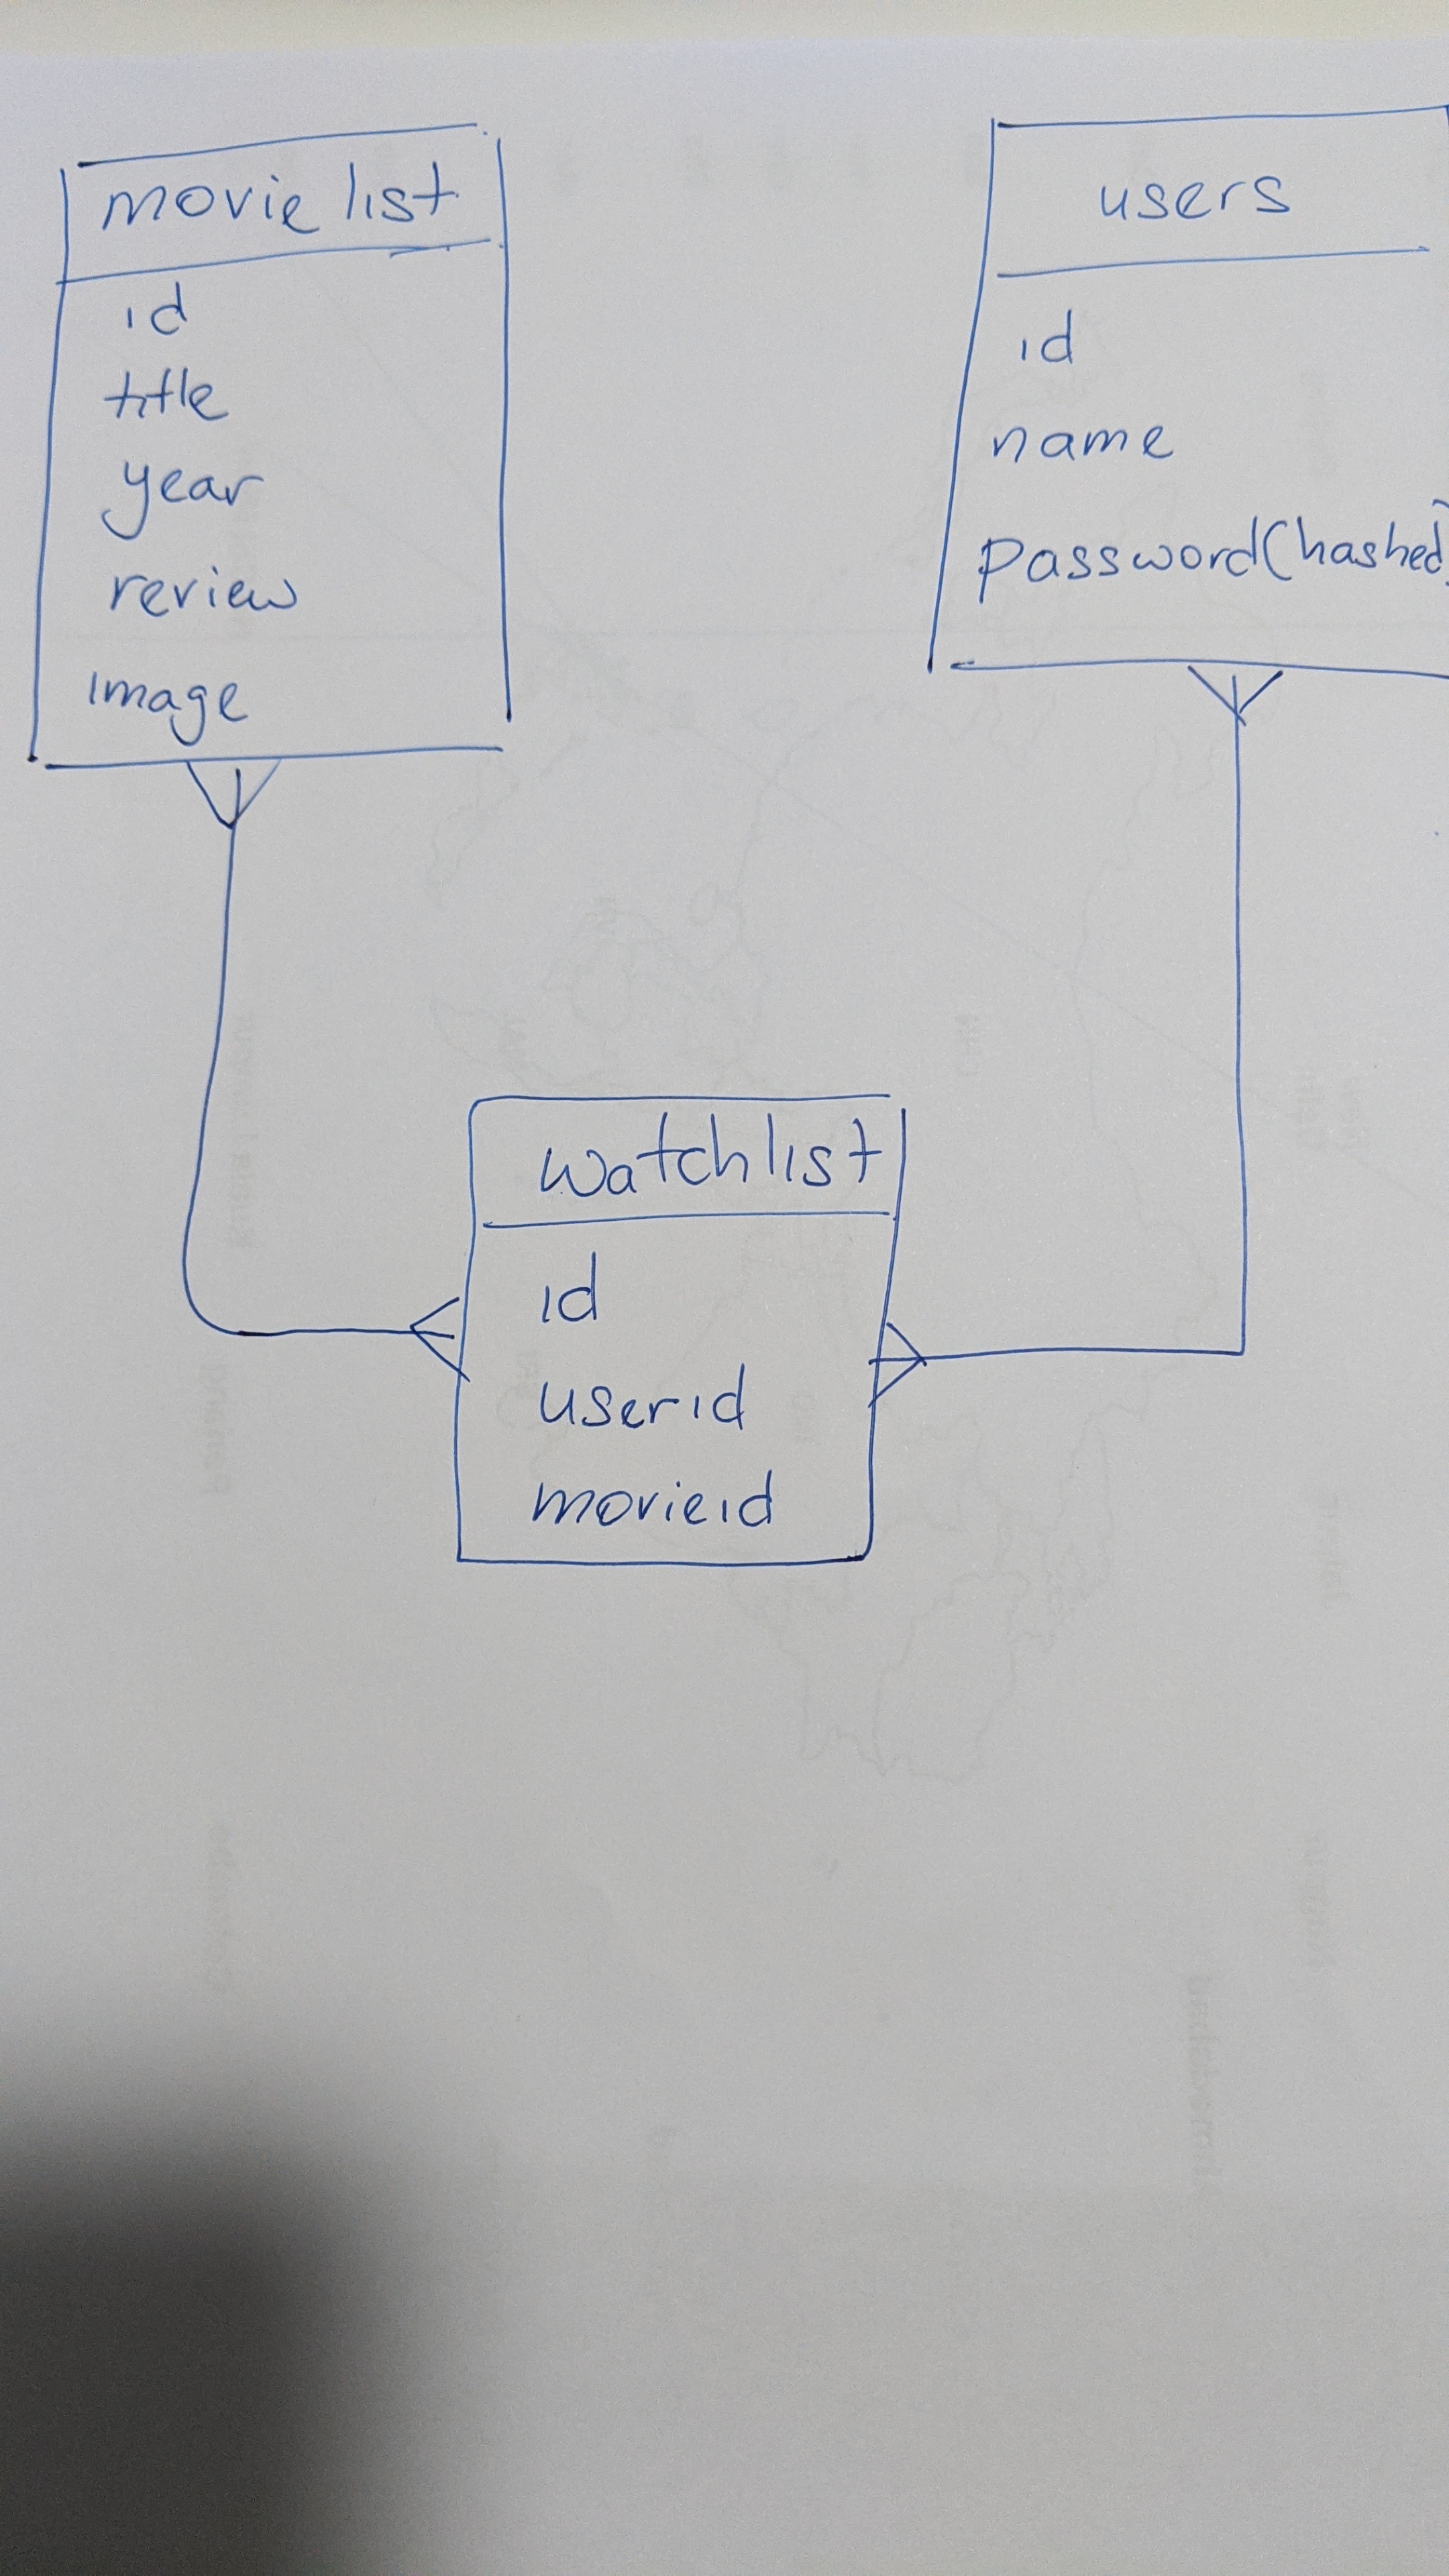 movie list
id
title
year
review
image
users
id
name
password(hashed)
watchlist
id
userid
movieid